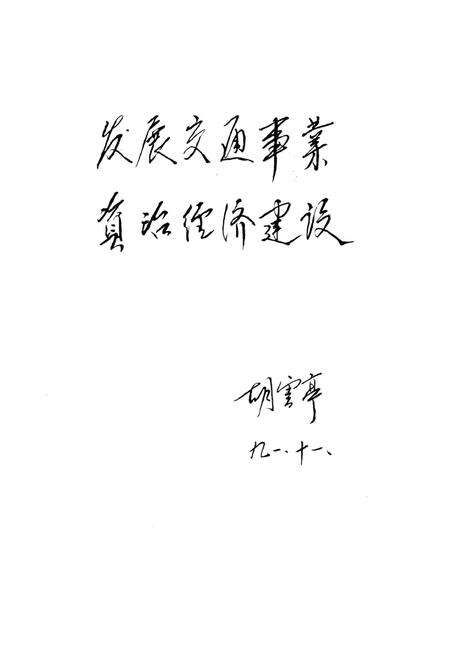 发展交通事業
資治經济建设
胡雲亭
九一、十一、